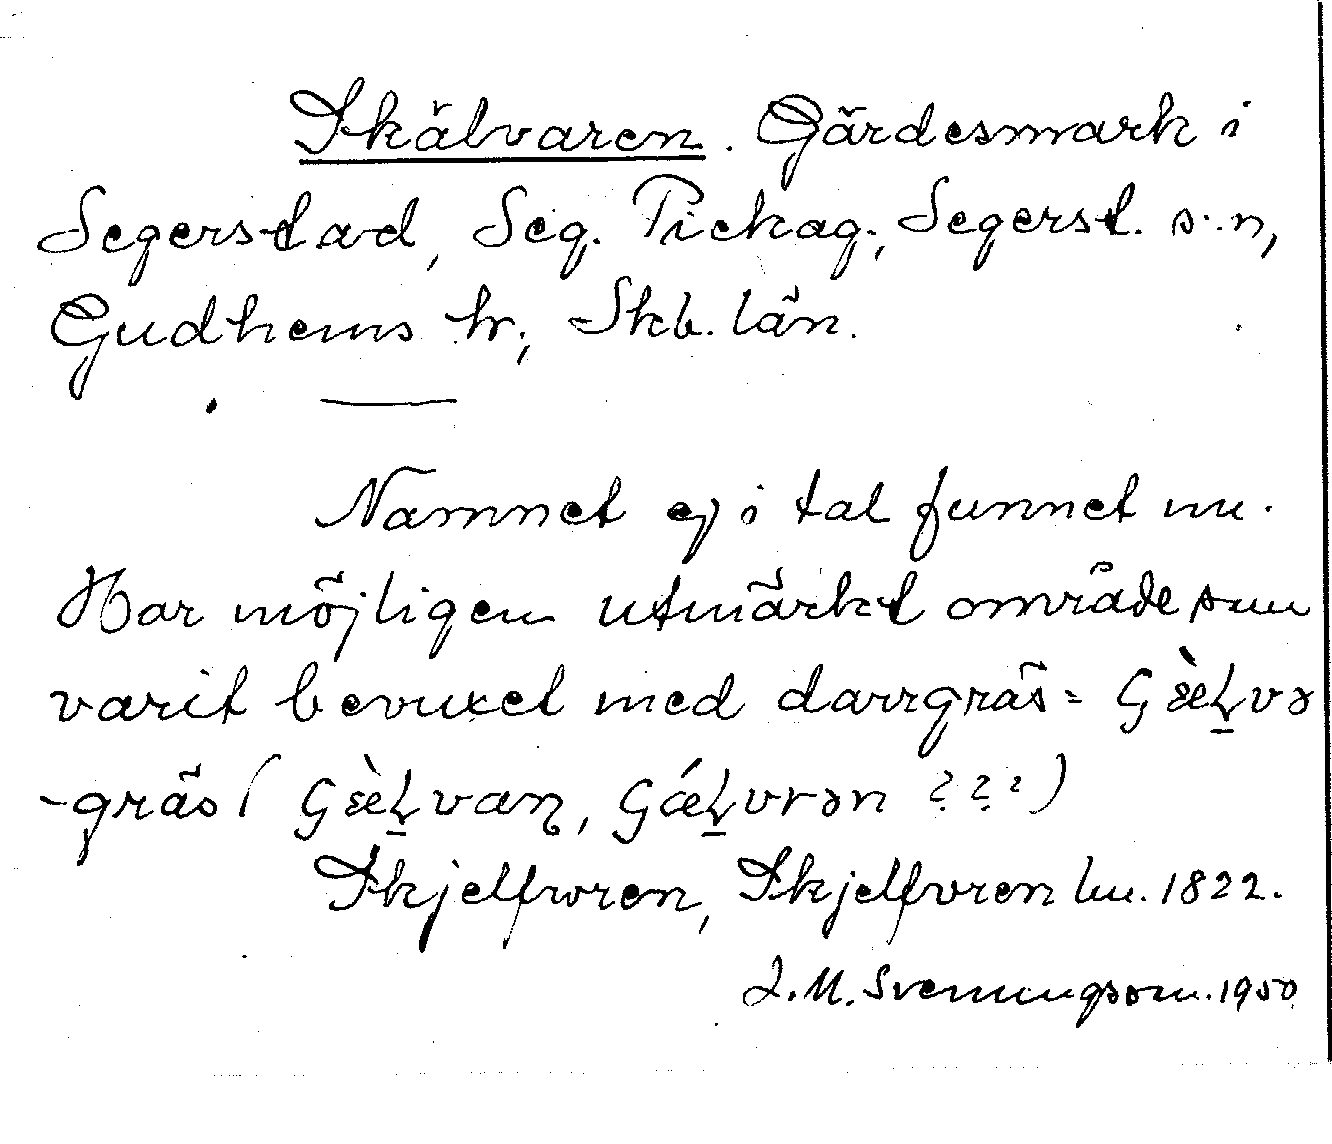 Skälvaren. Gärdesmark i
Segerstad, Seg. Pickag., Segerst. s:n,
Gudhems hr, Skb. län.
Namnet ej i tal funnet nu.
Har möjligen utmärkt område som
varit bevuxet med darrgräs =
-gräs ( ???)
Skjelfwren, Skjelfvren lm. 1822.
J. M. Svenungsson. 1950